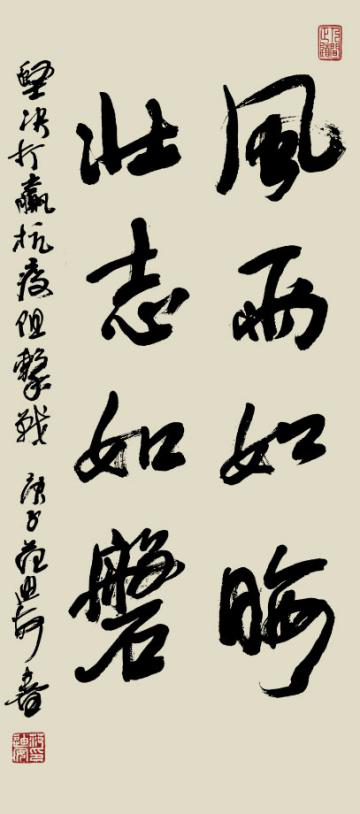 風雨如晦
壯志如磐
堅决打贏抗疫阻擊戰 庚子范迪安書